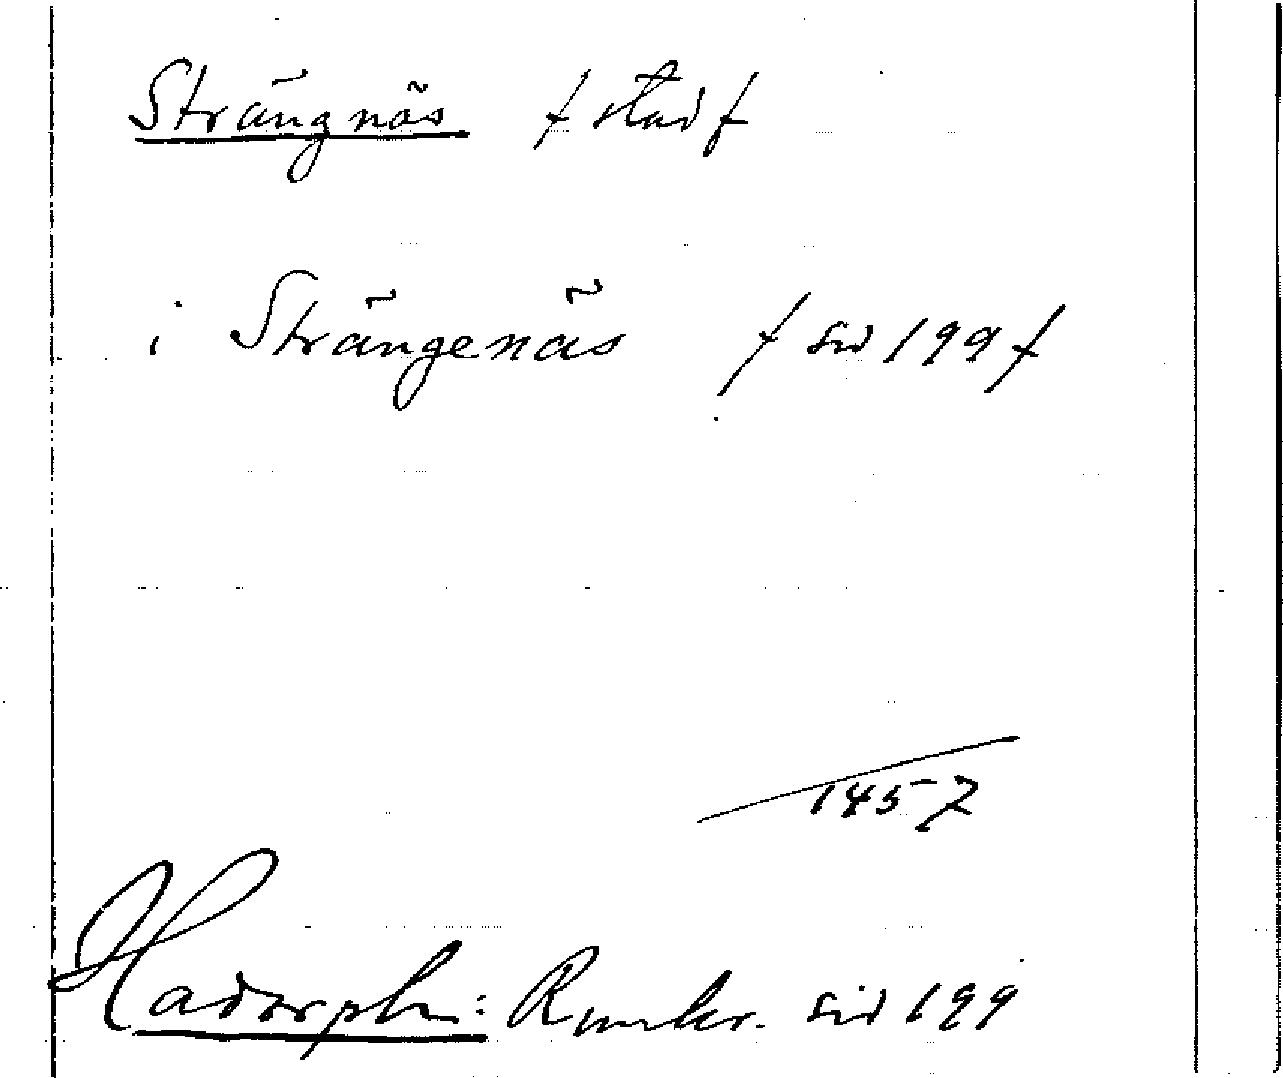 Strängnäs / stad /
i Strängenäs / sid 199 /
1457
Hadorph: Rimkr. sid 199